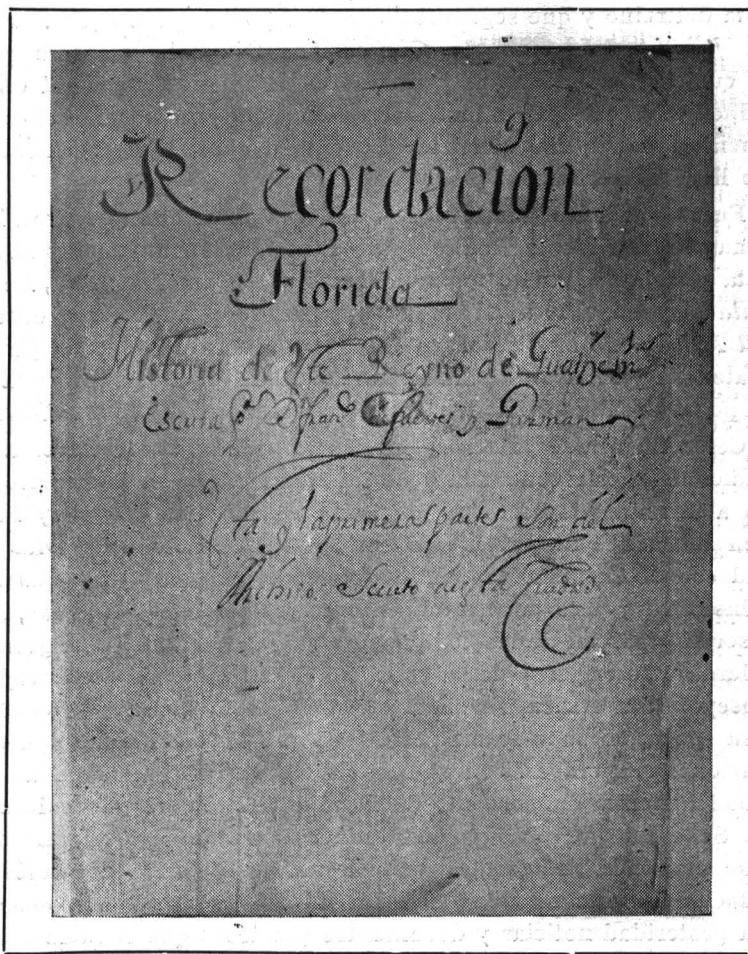 Recordacion
Florida
Historia de este Reyno de Guathem.ª
Escrita p.r D. Fran.co de fuentes y Guzman
Esta y la primera partes son del
Archivo Secreto de esta Ciudad